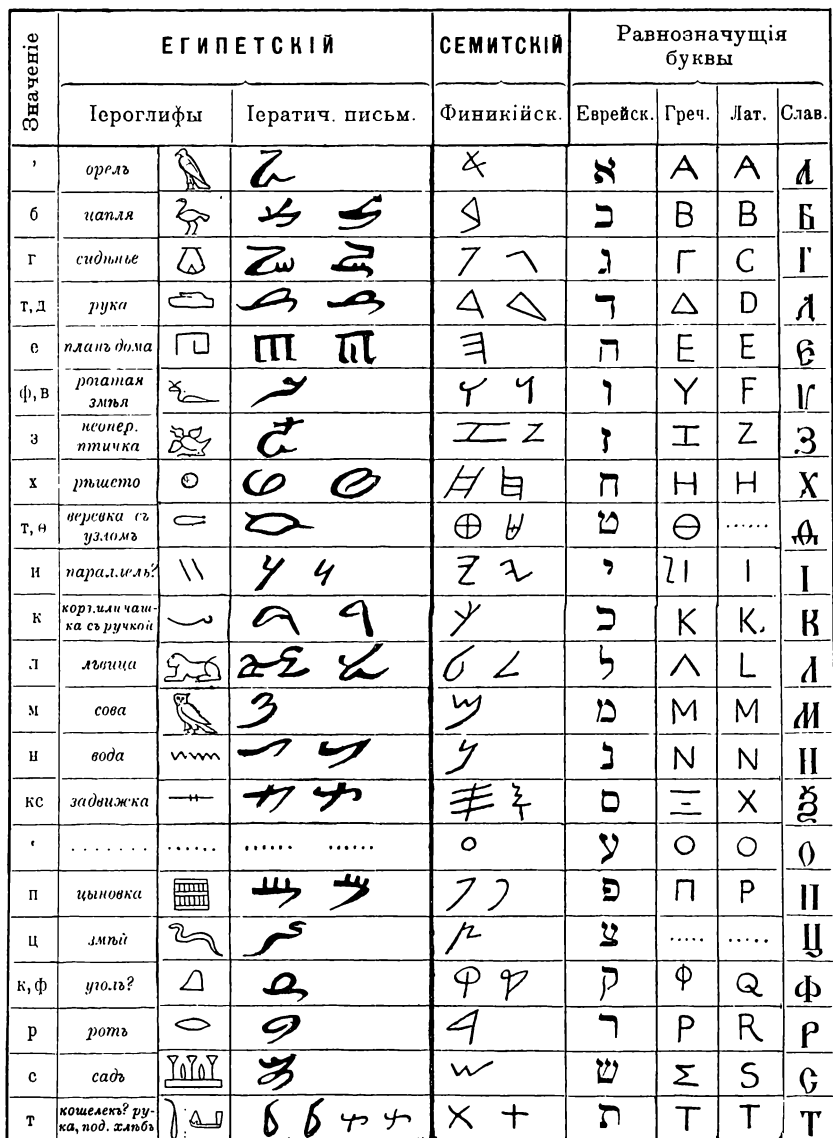 Значеніе ЕГИПЕТСКІЙ СЕМИТСКІЙ Равнозначущія
буквы
Іероглифы Іератич. письм. Финикійск. Еврейск. Греч. Лат. Слав.
’ орелъ א A A А
б цапля ב B B Б
г сидѣнье ג Γ C Г
т, д рука ד Δ D Д
е планъ дома ה E E Є
ф, в рогатая
змѣя ו Y F Ѵ
з неопер.
птичка ז Ι Z З
х рѣшето ח H H Х
т, ѳ веревка съ
узломъ ט Θ ...... Ѳ
и паралель? י I I І
к корз. или чаш-
ка съ ручкой כ K K. К
л львица ל Λ L Л
м сова מ M M М
н вода נ N N Н
кс задвижка ס Ξ X Ѯ
‘ ........ ...... ...... ע O O О
п цыновка פ Π P П
ц змѣй צ ..... ..... Ц
к, ф уголъ? ק Φ Q Ф
р ротъ ר P R Р
с садъ ש Σ S С
т кошелекъ? ру-
ка, под. хлѣбъ ת T T Т